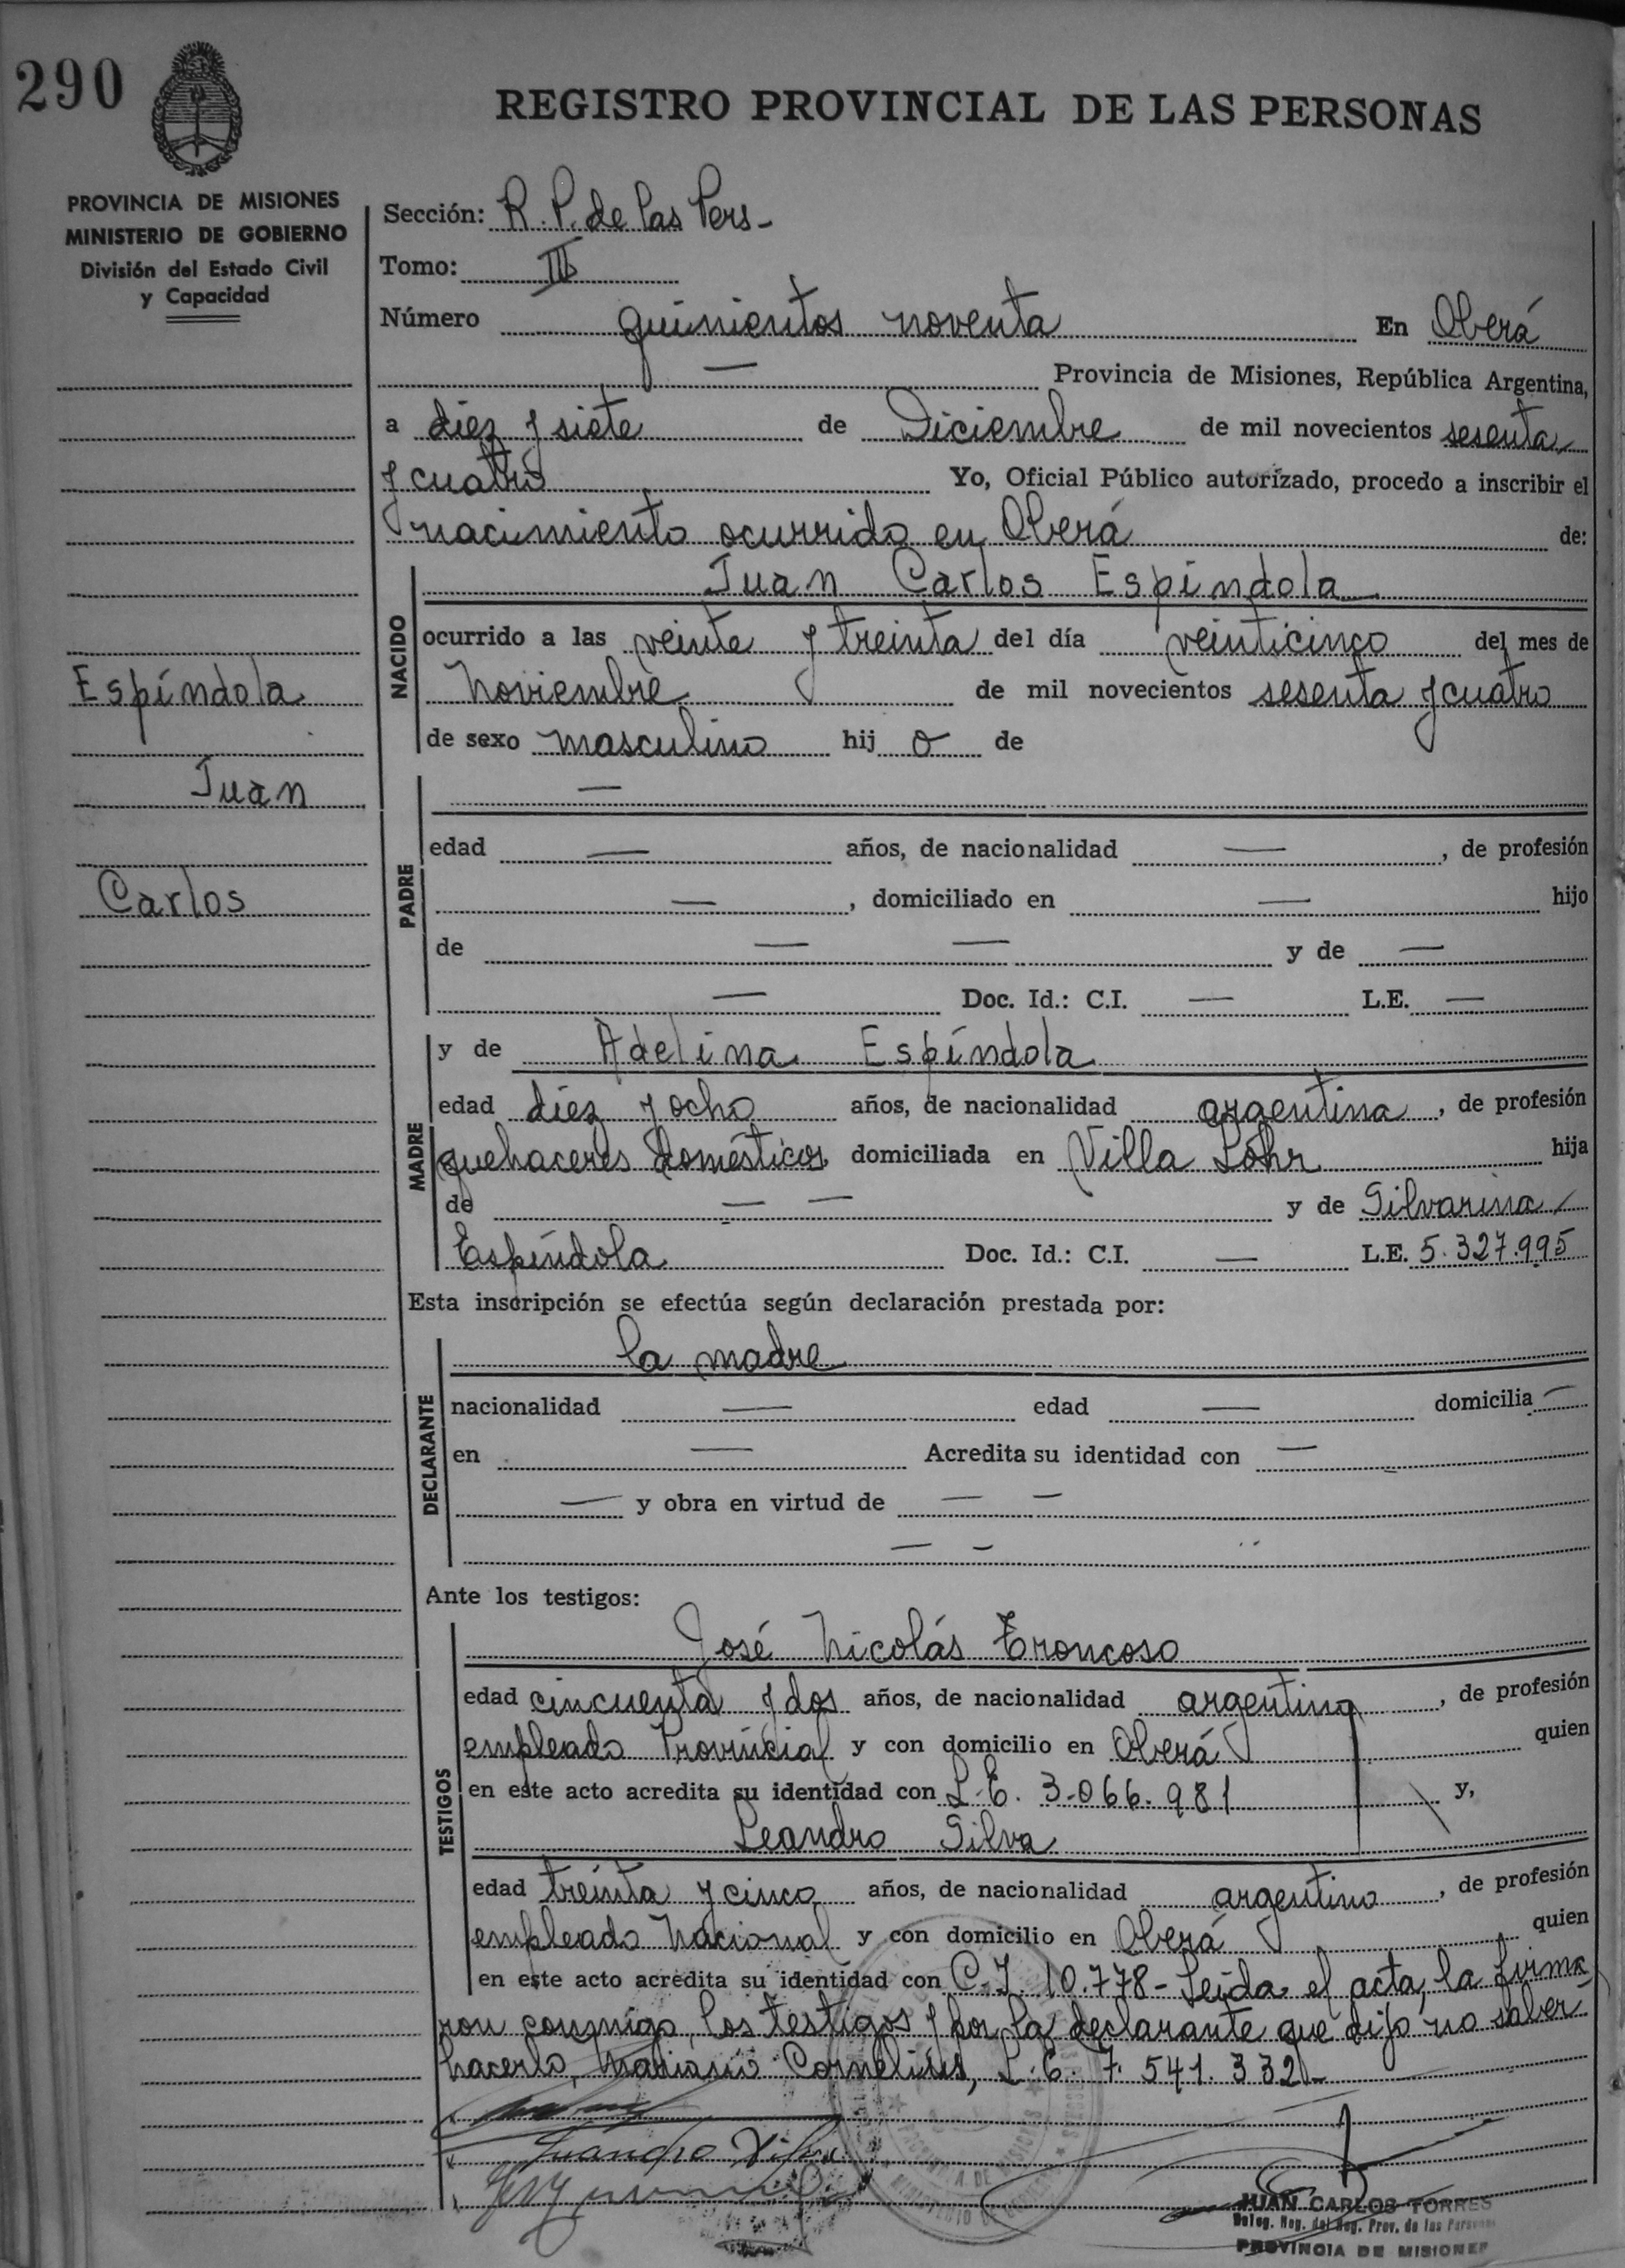 290
REGISTRO PROVINCIAL DE LAS PERSONAS
PROVINCIA DE MISIONES
MINISTERIO DE GOBIERNO
División del Estado Civil
y Capacidad
Sección: R. P. de las Pers-
Tomo: III
Número quinientos noventa En Oberá
— Provincia de Misiones, República Argentina,
a diez y siete de Diciembre de mil novecientos sesenta
y cuatro Yo, Oficial Público autorizado, procedo a inscribir el
nacimiento ocurrido en Oberá de:
Juan Carlos Espíndola
NACIDO
ocurrido a las veinte y treinta del día veinticinco del mes de
Noviembre de mil novecientos sesenta y cuatro
de sexo masculino hij o de
Espíndola
Juan
Carlos
PADRE
—
edad — años, de nacionalidad —, de profesión
—, domiciliado en — hijo
de — — y de —
— Doc. Id.: C.I. — L.E. —
MADRE
y de Adelina Espíndola
edad diez y ocho años, de nacionalidad argentina, de profesión
quehaceres domésticos, domiciliada en Villa Löhr hija
de — — y de Silvarina
Espíndola Doc. Id.: C.I. — L.E. 5.327.995
Esta inscripción se efectúa según declaración prestada por:
DECLARANTE
la madre
nacionalidad — edad — domicilia —
en — Acredita su identidad con —
— y obra en virtud de — —
— —
Ante los testigos:
TESTIGOS
José Nicolás Troncoso
edad cincuenta y dos años, de nacionalidad argentino, de profesión
empleado Provincial y con domicilio en Oberá quien
en este acto acredita su identidad con L.E. 3.066.981 y,
Leandro Silva
edad treinta y cinco años, de nacionalidad argentino, de profesión
empleado Nacional y con domicilio en Oberá quien
en este acto acredita su identidad con C.I. 10.778- Leida el acta, la firma
ron conmigo, los testigos y por la declarante que dijo no saber
hacerlo, Mariano Cornelius, L.E. 7.541.332-
Leandro Silva
JUAN CARLOS TORRES
Deleg. Reg. del Reg. Prov. de las Personas
PROVINCIA DE MISIONES